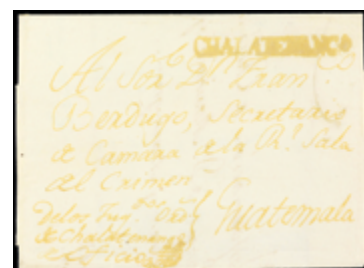 CHALATENANGO
Al Sor. Dn. Fran.co
Berdugo, Secretario
de Camara de la Rl. Sala
del Crimen
de los
Guatemala
de Chalatenango
de oficio